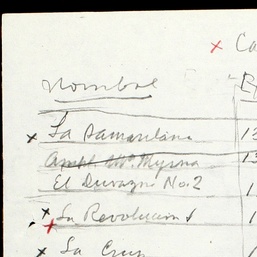 x Ca
Nombre
x La Samaritana 12
Myrna 13
El Durazno No. 2 1
x La Revolucion 1
x La Cruz